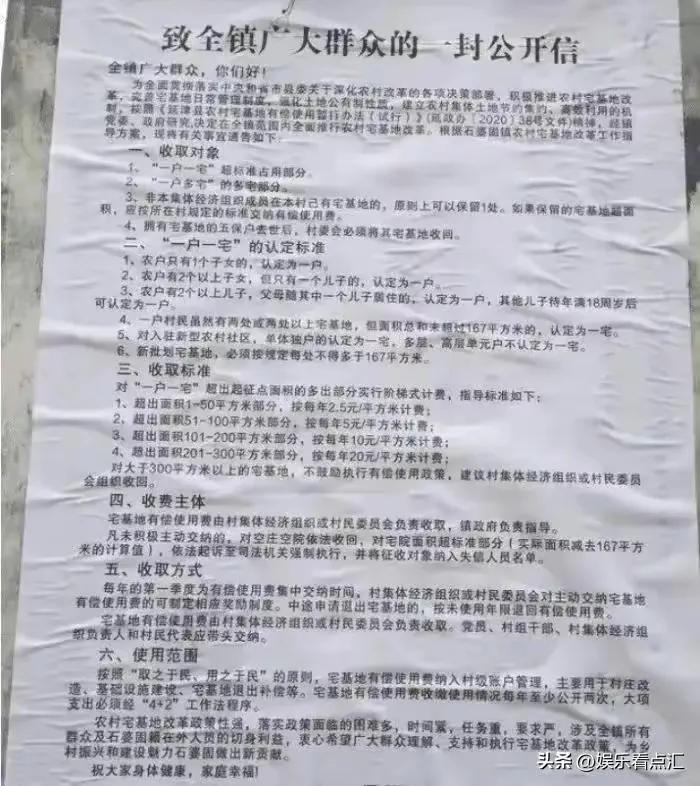 致全镇广大群众的一封公开信
全镇广大群众，你们好！
为全面贯彻落实中央和省市县委关于深化农村改革的各项决策部署，积极推进农村宅基地改
革，完善宅基地日常管理制度，强化土地公有制性质，建立农村集体土地节约集约、高效利用的机
制，按照《延津县农村宅基地有偿使用暂行办法（试行）》（延政办〔2020〕38号文件）精神，经镇
党委、政府研究，决定在全镇范围内全面推行农村宅基地改革。根据石婆固镇农村宅基地改革工作指
导方案，现将有关事宜通告如下：
一、收取对象
1、“一户一宅”超标准占用部分。
2、“一户多宅”的多宅部分。
3、非本集体经济组织成员在本村已有宅基地的，原则上可以保留1处。如果保留的宅基地超面
积，应按所在村规定的标准交纳有偿使用费。
4、拥有宅基地的五保户去世后，村委会必须将其宅基地收回。
二、“一户一宅”的认定标准
1、农户只有1个子女的，认定为一户。
2、农户有2个以上子女，但只有一个儿子的，认定为一户。
3、农户有2个以上儿子，父母随其中一个儿子居住的，认定为一户，其他儿子待年满18周岁后
可认定为一户。
4、一户村民虽然有两处或两处以上宅基地，但面积总和未超过167平方米的，认定为一宅。
5、对入驻新型农村社区，单体独户的认定为一宅，多层、高层单元户不认定为一宅。
6、新批划宅基地，必须按规定每处不得多于167平方米。
三、收取标准
对“一户一宅”超出起征点面积的多出部分实行阶梯式计费，指导标准如下：
1、超出面积1-50平方米部分，按每年2.5元/平方米计费；
2、超出面积51-100平方米部分，按每年5元/平方米计费；
3、超出面积101-200平方米部分，按每年10元/平方米计费；
4、超出面积201-300平方米部分，按每年20元/平方米计费；
对大于300平方米以上的宅基地，不鼓励执行有偿使用政策，建议村集体经济组织或村民委员
会组织收回。
四、收费主体
宅基地有偿使用费由村集体经济组织或村民委员会负责收取，镇政府负责指导。
凡未积极主动交纳的，对空庄空院依法收回，对宅院面积超标准部分（实际面积减去167平方
米的计算值），依法起诉至司法机关强制执行，并将征收对象纳入失信人员名单。
五、收取方式
每年的第一季度为有偿使用费集中交纳时间，村集体经济组织或村民委员会对主动交纳宅基地
有偿使用费的可制定相应奖励制度。中途申请退出宅基地的，按未使用年限退回有偿使用费。
宅基地有偿使用费由村集体经济组织或村民委员会负责收取。党员、村组干部、村集体经济组
织负责人和村民代表应带头交纳。
六、使用范围
按照“取之于民、用之于民”的原则，宅基地有偿使用费纳入村级账户管理，主要用于村庄改
造、基础设施建设、宅基地退出补偿等。宅基地有偿使用费收缴使用情况每年至少公开两次，大项
支出必须经“4+2”工作法程序。
农村宅基地改革政策性强，落实政策面临的困难多，时间紧，任务重，要求严，涉及全镇所有
群众及石婆固籍在外人员的切身利益，衷心希望广大群众理解、支持和执行宅基地改革政策，为乡
村振兴和建设魅力石婆固做出新贡献。
祝大家身体健康，家庭幸福！
头条 @娱乐看点汇